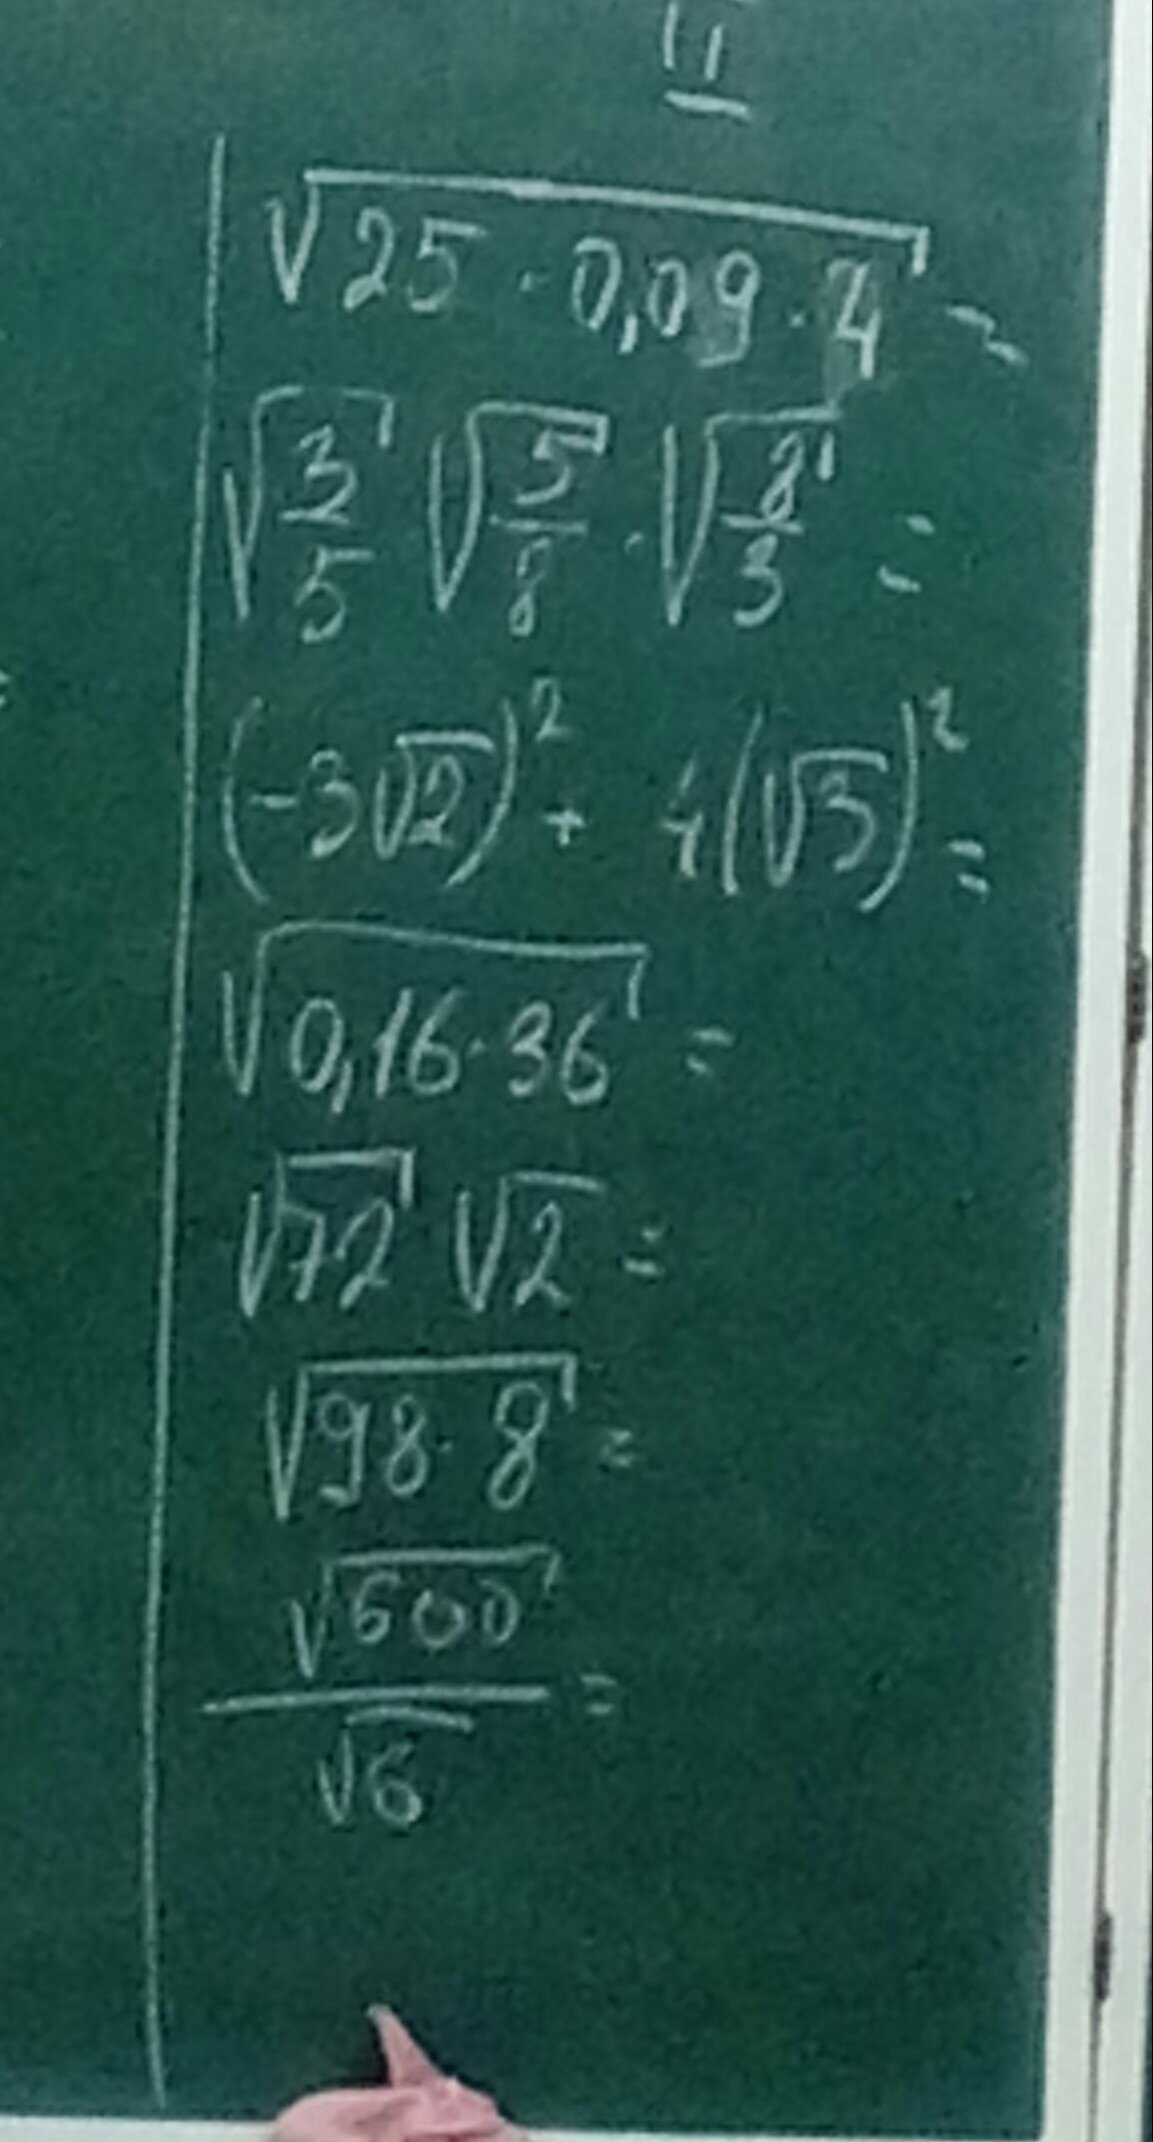 II
√25 · 0,09 · 4 =
√3/5 √5/8 · √8/3 =
(-3√2)² + 4(√3)² =
√0,16 · 36 =
√72 √2 =
√98 · 8 =
√600
√6 =